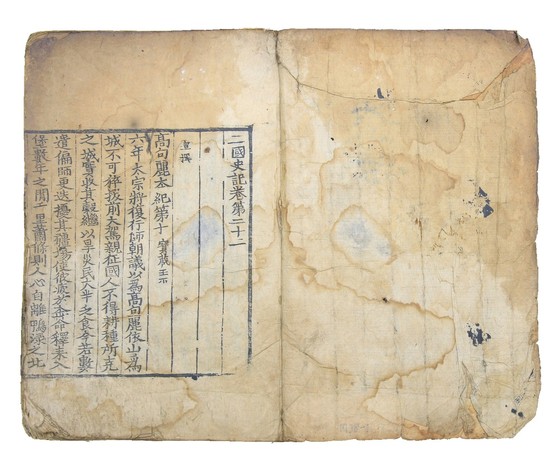 三國史記卷第二十二
宣撰
高句麗本紀第十 寶臧王下
六年太宗將復行師朝議以爲高句麗依山爲
城不可猝拔前大駕親征國人不得耕種所克
之城實收其穀繼以旱災民太半乏食今若數
遣偏師更迭擾其疆場使彼疲於奔命釋耒入
堡數年之間千里蕭條則人心自離鴨淥之北